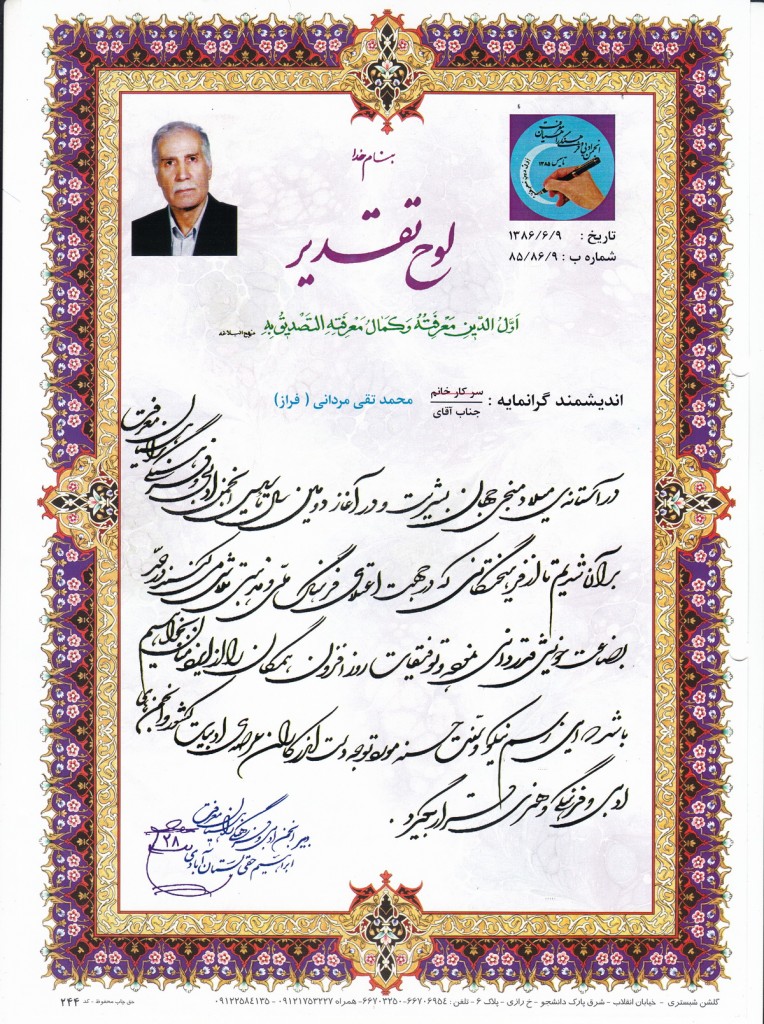 بنام خدا
انجمن ادبی و فرهنگی گلستان معرفت
تاسیس ۱۳۸۵
لوح تقدیر
تاریخ : ۱۳۸۶/۶/۹
شماره ب : ۸۵/۸۶/۹
اَوَّلُ الدّینِ مَعْرِفَتُهُ وَ کَمالُ مَعْرِفَتِهِ التَّصْدیقُ بِهِ نهج البلاغه
اندیشمند گرانمایه : سرکار خانم
جناب آقای محمد تقی مردانی ( فراز)
در آستانه‌ی میلاد منجی جهان بشریت و در آغاز دومین سال تاسیس انجمن ادبی و فرهنگی معرفت
بر آن شدیم تا از فرهیختگانی که در جهت اعتلای فرهنگ ملی و مذهبی تلاش می کنند در حدّ
بضاعت خویش قدردانی نموده و توفیقات روز افزون همگان را از ایزد منان بخواهیم
باشد این رسم نیکو و سنت حسنه مورد توجه دست اندرکاران ادبیات کشور و انجمن های
ادبی و فرهنگی و هنری قرار بگیرد .
دبیر انجمن ادبی و فرهنگی معرفت
ابراهیم حقی بستان آبادی
۲۸
گلشن شبستری - خیابان انقلاب - شرق پارک دانشجو - خ رازی - پلاک ۶ - تلفن : ۶۶۷۰۶۹۵۴-۶۶۷۰۳۲۵۰ - همراه ۰۹۱۲۱۷۵۳۲۲۷ - ۰۹۱۲۲۵۸۴۱۳۵
حق چاپ محفوظ - کد ۲۴۴